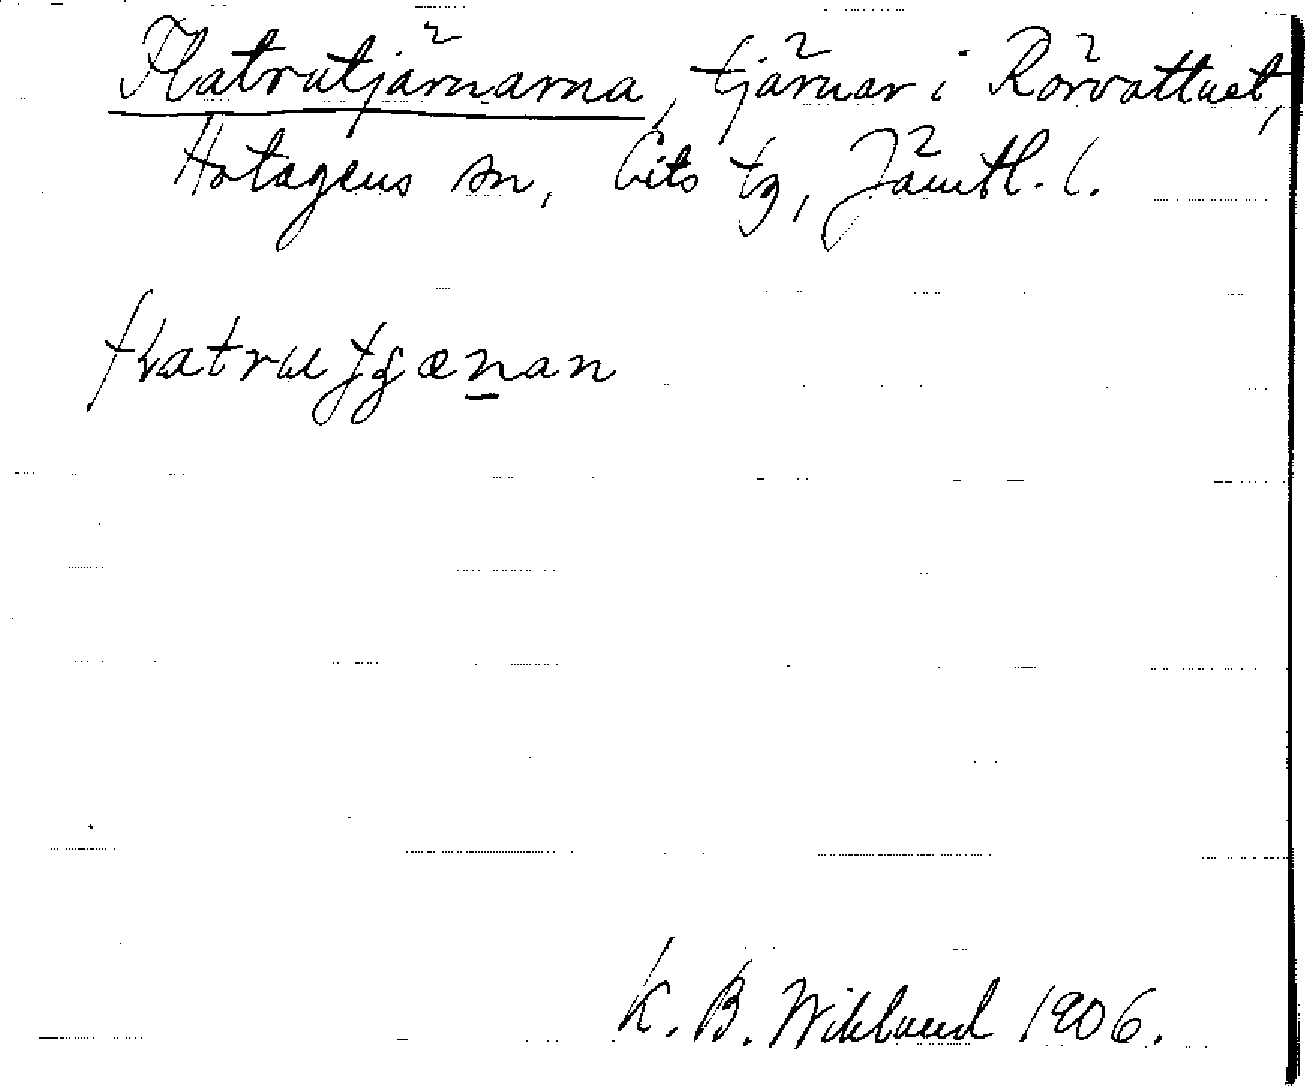 Flatrutjärnarna, tjärnar i Rörvattnet,
Hotagens sn, Lits tg, Jämtl. l.
K. B. Wiklund 1906.